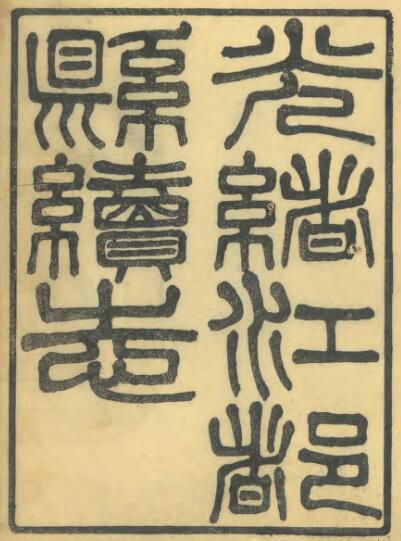 光緒江都
縣續志